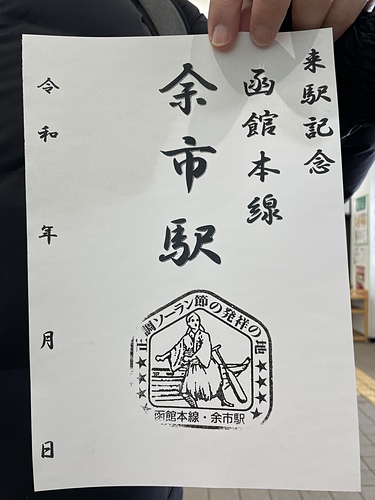 来駅記念
函館本線
余市駅
令和 年 月 日
正調ソーラン節の発祥の地
函館本線・余市駅